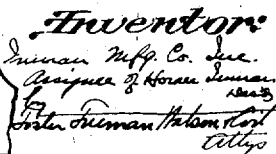 Inventor:
Inman Mfg. Co. Inc.
Assignee of Horace Inman
by
Foster Freeman Watson & Coit
Attys